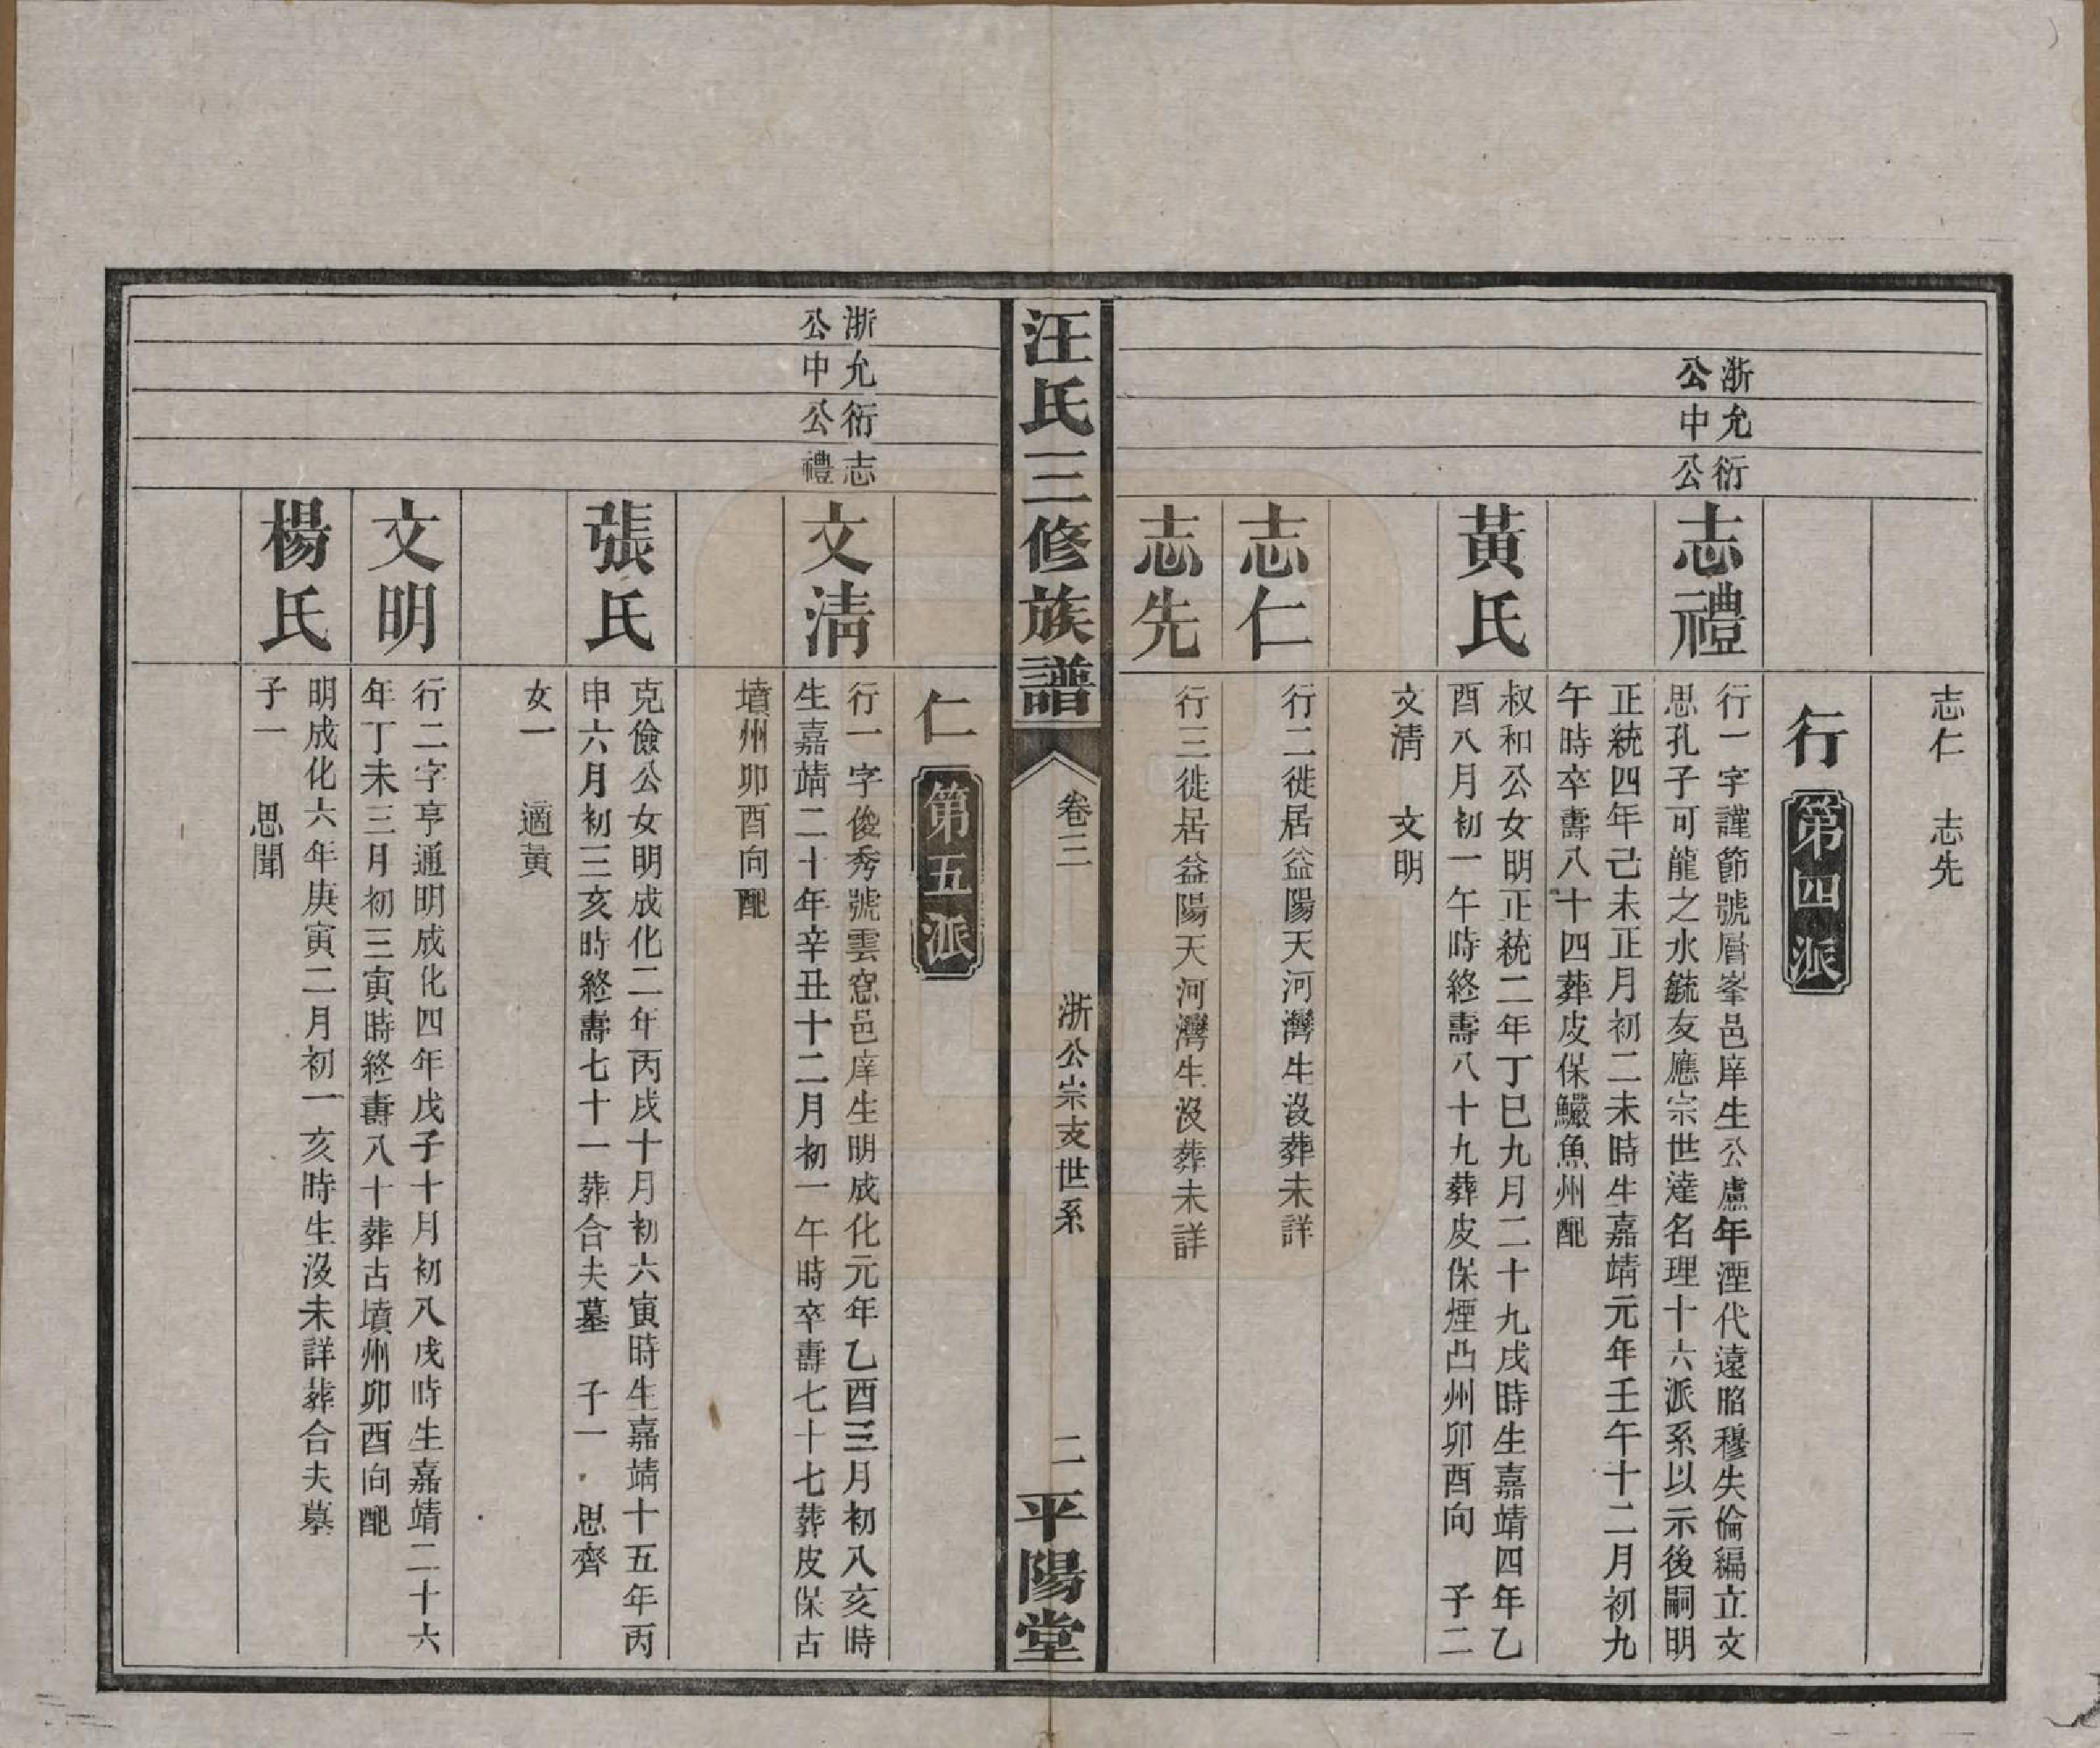 志仁　志先
行　第四派
浙允衍
公中公
志禮
行一字謹節號層峯邑庠生公慮年湮代遠昭穆失倫編立文
思孔子可龍之水毓友應宗世達名理十六派系以示後嗣明
正統四年己未正月初二未時生嘉靖元年壬午十二月初九
午時卒壽八十四葬皮保鱺魚州配
黃氏
叔和公女明正統二年丁巳九月二十九戌時生嘉靖四年乙
酉八月初一午時終壽八十九葬皮保煙凸州卯酉向　子二
文淸　文明
志仁
行二徙居益陽天河灣生沒葬未詳
志先
行三徙居益陽天河灣生沒葬未詳
汪氏三修族譜
卷二
浙公崇支世系
二
平陽堂
仁　第五派
浙允衍志
公中公禮
文淸
行一字俊秀號雲窓邑庠生明成化元年乙酉三月初八亥時
生嘉靖二十年辛丑十二月初一午時卒壽七十七葬皮保古
墳州卯酉向配
張氏
克儉公女明成化二年丙戌十月初六寅時生嘉靖十五年丙
申六月初三亥時終壽七十一葬合夫墓　子一　思齊
女一　適黃
文明
行二字亨通明成化四年戊子十月初八戌時生嘉靖二十六
年丁未三月初三寅時終壽八十葬古墳州卯酉向配
楊氏
明成化六年庚寅二月初一亥時生沒未詳葬合夫墓
子一　思聞